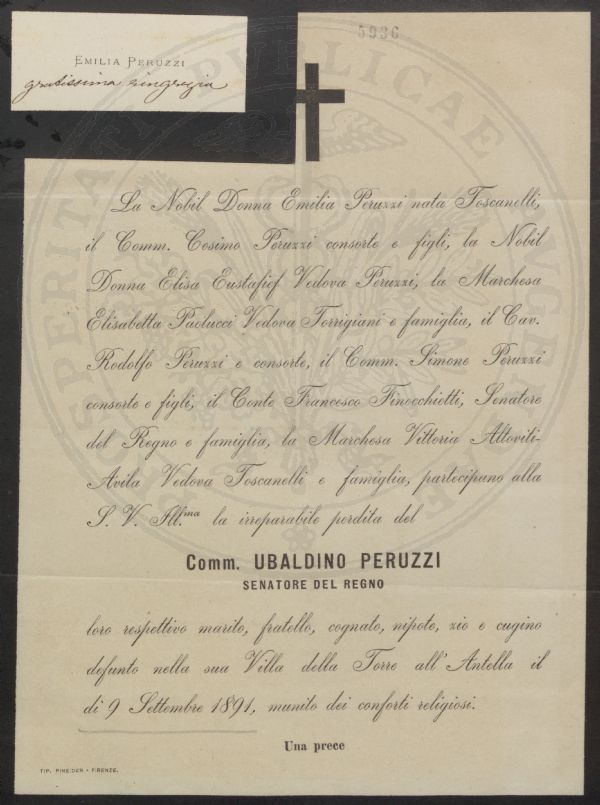 5936
EMILIA PERUZZI
gratissima ringrazia
La Nobil Donna Emilia Peruzzi nata Toscanelli,
il Comm. Cosimo Peruzzi consorte e figli, la Nobil
Donna Elisa Eustafief Vedova Peruzzi, la Marchesa
Elisabetta Paolucci Vedova Torrigiani e famiglia, il Cav.
Rodolfo Peruzzi e consorte, il Comm. Simone Peruzzi
consorte e figli, il Conte Francesco Finocchietti, Senatore
del Regno e famiglia, la Marchesa Vittoria Altoviti-
Avila Vedova Toscanelli e famiglia, partecipano alla
S. V. Ill.ma la irreparabile perdita del
Comm. UBALDINO PERUZZI
SENATORE DEL REGNO
loro respettivo marito, fratello, cognato, nipote, zio e cugino
defunto nella sua Villa della Torre all'Antella il
dì 9 Settembre 1891, munito dei conforti religiosi.
Una prece
TIP. PINEIDER - FIRENZE.